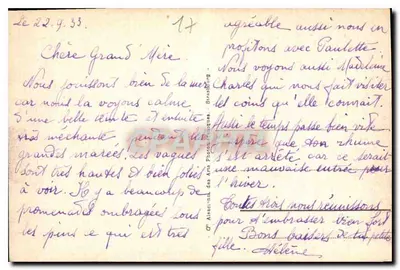 Le 22.9.33.
17
Chère Grand Mère
Nous jouissons bien de la mer
car nous la voyons calme
d'une belle et ensuite
très méchante pendant les
grandes marées. Les vagues
sont très hautes et bien jolies
à voir. Il y a beaucoup de
promenades ombragées sous
les pins ce qui est très
agréable aussi nous en
profitons avec Paulette.
Nous voyons aussi Madeleine
Charles qui nous fait visiter
les coins qu'elle connait.
Aussi le temps passe bien vite
que son rhume
s'est arrêté car ce serait
une mauvaise entrée pour
l'hiver.
Toutes trois nous réunissons
pour t'embrasser bien fort
Bons baisers de ta petite
fille. Hélène
Cie Alsacienne des Arts Photomécaniques - Strasbourg